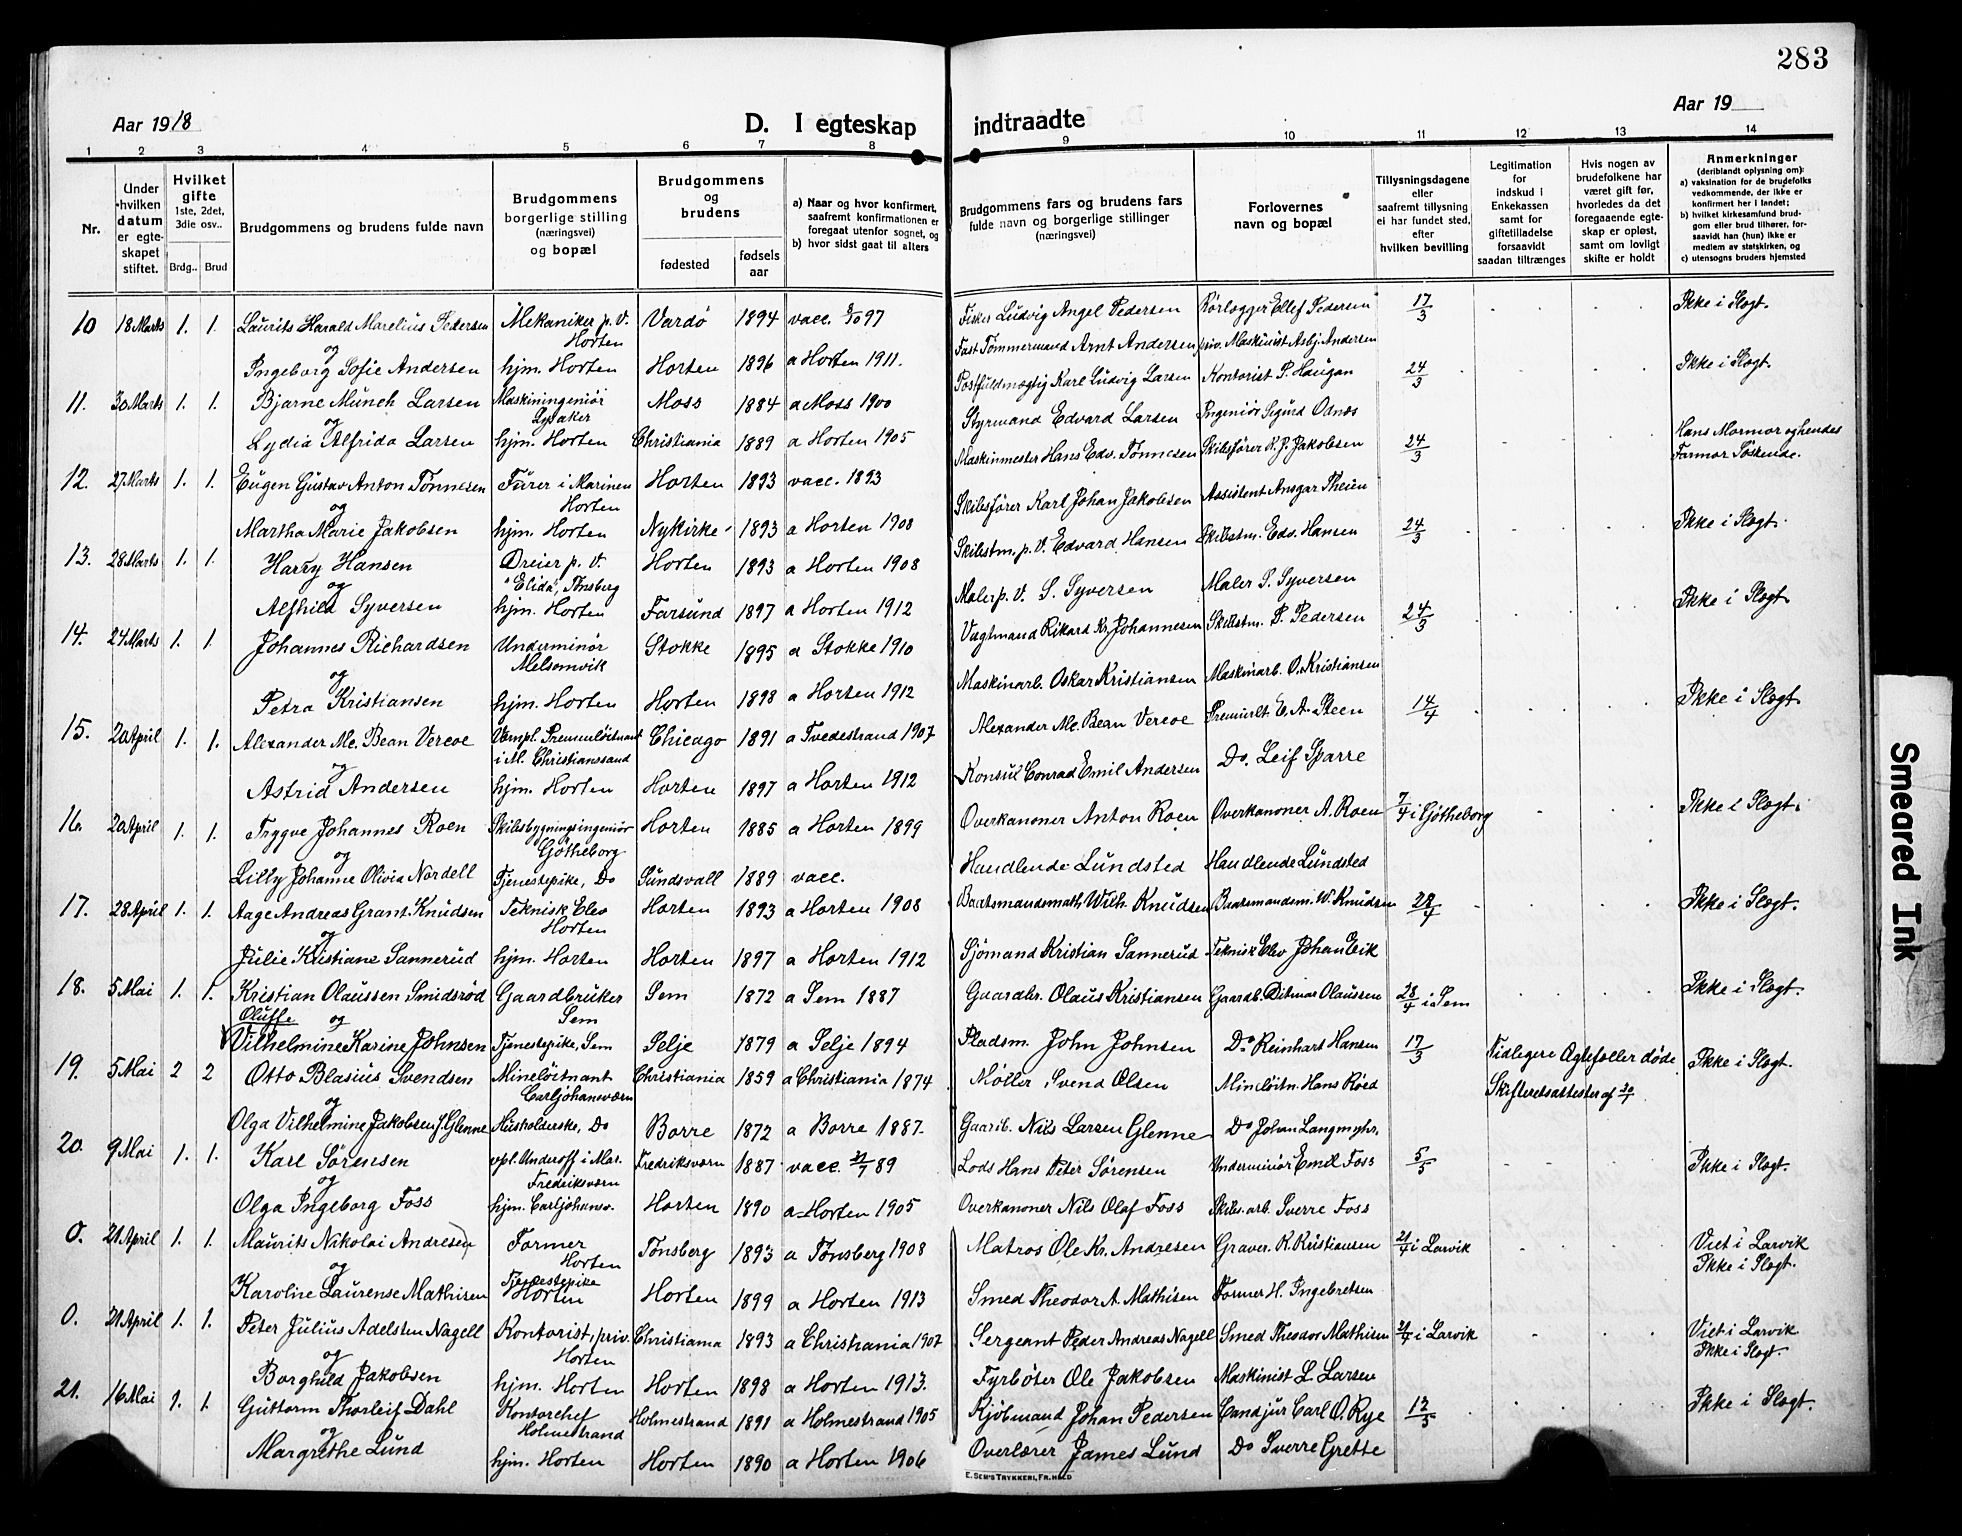 283
Aar 1918
D. I egteskap indtraadte
Aar 19
1 2 3 4 5 6 7 8 9 10 11 12 13 14
Nr.
Under hvilken datum er egteskapet stiftet.
Hvilket gifte 1ste, 2det, 3die osv..
Brdg.. Brud
Brudgommens og brudens fulde navn
Brudgommens borgerlige stilling (næringsvei) og bopæl
Brudgommens og brudens
fødested
fødselsaar
a) Naar og hvor konfirmert, saafremt konfirmationen er foregaat utenfor sognet, og
b) hvor sidst gaat til alters
Brudgommens fars og brudens fars fulde navn og borgerlige stillinger (næringsvei)
Forlovernes navn og bopæl
Tillysningsdagene eller saafremt tillysning ei har fundet sted, efter hvilken bevilling
Legitimation for indskud i Enkekassen samt for giftetilladelse forsaavidt saadan tiltrænges
Hvis nogen av brudefolkene har været gift før, hvorledes da det foregaaende egteskap er opløst, samt om lovligt skifte er holdt
Anmerkninger
(deriblandt oplysning om):
a) vaksination for de brudefolks vedkommende, der ikke er konfirmert her i landet;
b) hvilket kirkesamfund brudgom eller brud tilhører, forsaavidt han (hun) ikke er medlem av statskirken, og
c) utensogns bruders hjemsted
10 18 Marts 1. 1. Laurits Harald Marelius Pedersen Mekaniker p. V. Horten Vardö 1894 vacc. 8/10 97 Fisker Ludvig Angel Pedersen Rörlægger Ellef Pedersen 17/3 Ikke i Slægt.
og
Ingeborg Sofie Andersen hjm. Horten Horten 1896 a Horten 1911. Fast Tömmermand Arnt Andersen priv. Maskinist Asbj. Andersen
11. 30 Marts 1. 1. Bjarne Münch Larsen Maskiningeniör Lysaker Moss 1884 a Moss 1900 Postfuldmægtig Karl Ludvig Larsen Kontorist P. Haugan 24/3 Ikke i Slægt.
og
Lydia Alfrida Larsen hjm. Horten Christiania 1889 a Horten 1905 Styrmand Edvard Larsen Ingeniör Sigurd Odnæs
12. 27 Marts 1. 1. Eugen Gustav Anton Tönnesen Fürer i Marinen Horten Horten 1893 vacc. 1893 Maskinmester Hans Edv. Tönnesen Skibsförer K. J. Jakobsen 24/3 Hans Mormor og hendes Farmor Söskende.
og
Martha Marie Jakobsen hjm. Horten Nykirke 1893 a Horten 1908 Skibsförer Karl Johan Jakobsen Assistent Ansgar Theien
13. 28 Marts 1. 1. Harry Hansen Dreier p. V. "Elida", Tönsberg Horten 1893 a Horten 1908 Skibstm. p. V. Edvard Hansen Skibstm. Edv. Hansen 24/3 Ikke i Slægt.
og
Alfhild Syversen hjm. Horten Farsund 1897 a Horten 1912 Maler p. V. S. Syversen Maler S. Syversen
14. 24 Marts 1. 1. Johannes Richardsen Underminör Melsomvik Stokke 1895 a Stokke 1910 Vagtmand Rikard Kr. Johannesen Skibstm. P. Pedersen 24/3 Ikke i Slægt.
og
Petra Kristiansen hjm. Horten Horten 1898 a Horten 1912 Maskinarb. Oskar Kristiansen Maskinarb. O. Kristiansen
15. 20 April 1. 1. Alexander Mc. Bean Vereoe Vernpl. Premierlöitnant i M. Christianssand Chicago 1891 a Tvedestrand 1907 Alexander Mc. Bean Vereoe Premierlt. E. A. Steen 14/4 Ikke i Slægt.
og
Astrid Andersen hjm. Horten Horten 1897 a Horten 1912 Konsul Conrad Emil Andersen Do. Leif Sparre
16. 20 April 1. 1. Trygve Johannes Roen Skibsbygningsingeniör Götheborg Horten 1885 a Horten 1899 Overkanoner Anton Roen Overkanoner A. Roen 7/4 i Götheborg Ikke i Slægt.
og
Lilly Johanne Olivia Nordell Tjenestepike, Do Sundsvall 1889 vacc. Handlende Lundsted Handlende Lundsted
17. 28 April 1. 1. Aage Andreas Grant Knudsen Teknisk Elev Horten Horten 1893 a Horten 1908 Baatsmandsmath Wilh. Knudsen Baatsmandsm. W. Knudsen 28/4 Ikke i Slægt.
og
Julie Kristiane Sannerud hjm. Horten Horten 1897 a Horten 1912 Sjömand Kristian Sannerud Teknisk Elev Johan Eik
18. 5 Mai 1. 1. Kristian Olaussen Smidsröd Gaardbruker Sem Sem 1872 a Sem 1887 Gaardbr. Olaus Kristiansen Gaardb. Ditmar Olaussen 28/4 i Sem Ikke i Slægt.
Oluffe og
Vilhelmine Karine Johnsen Tjenestepike, Sem Selje 1879 a Selje 1894 Pladsm. John Johnsen Do Reinhart Hansen
19. 5 Mai 2 2 Otto Blasius Svendsen Minelöitnant Carljohansværn Christiania 1859 a Christiania 1874 Möller Svend Olsen Minelöitn. Hans Röed 17/3 Tidligere Ægtefæller döde Skifteretsattester af 30/1 Ikke i Slægt.
og
Olga Vilhelmine Jakobsen f. Glenne Husholderske, Do Borre 1872 a Borre 1887. Gaarb. Nils Larsen Glenne Do Johan Langmyhr.
20. 9 Mai 1. 1. Karl Sörensen vpl. Underoff i Mar. Fredriksværn Fredriksværn 1887 vacc. 21/7 89 Lods Hans Peter Sörensen Underminör Emil Foss 5/5 Ikke i Slægt.
og
Olga Ingeborg Foss hjm. Carljohansv. Horten 1890 a Horten 1905 Overkanoner Nils Olaf Foss Skibs. arb. Sverre Foss
0. 21 April 1. 1. Maurits Nikolai Andresen Former Horten Tönsberg 1893 a Tönsberg 1908 Matros Ole Kr. Andresen Graver. K. Kristiansen 21/4 i Larvik Viet i Larvik Ikke i Slægt.
og
Karoline Laurense Mathisen Tjenestepike Horten Horten 1899 a Horten 1913 Smed Theodor A. Mathisen Former H. Ingebretsen
0. 21 April 1. 1. Peter Julius Adelsten Nagell Kontorist, priv. Horten Christiania 1893 a Christiania 1907 Sergeant Peder Andreas Nagell Smed Theodor Mathisen 21/4 i Larvik Viet i Larvik Ikke i Slægt.
og
Borghild Jakobsen hjm. Horten Horten 1898 a Horten 1913. Fyrböter Ole Jakobsen Maskinist L. Larsen
21. 16 Mai 1. 1. Guttorm Thorleif Dahl Kontorchef Holmestrand Holmestrand 1891 a Holmestrand 1905 Kjöbmand Johan Pedersen Cand jur Carl O. Rye 12/5 Ikke i Slægt.
og
Margrethe Lund hjm. Horten Horten 1890 a Horten 1906 Overlærer James Lund Do Sverre Grette
E. SEM'S TRYKKERI, FR.HALD
Smeared Ink